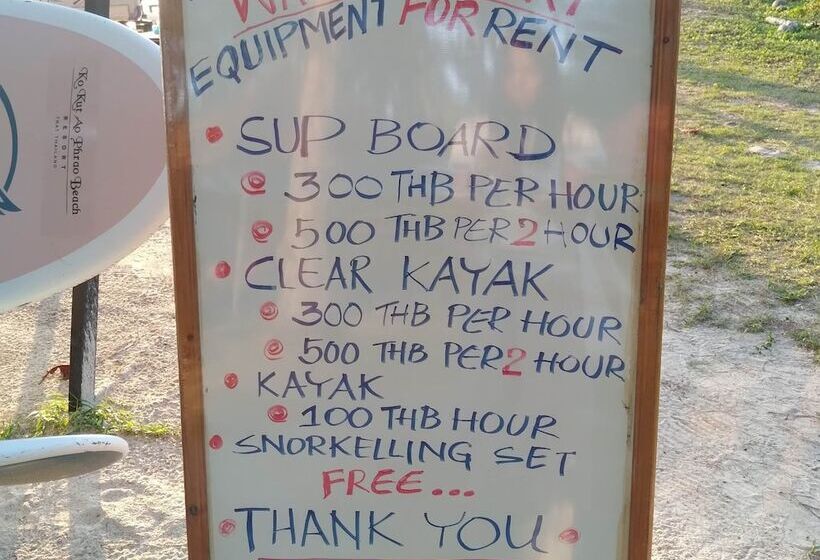 EQUIPMENT FOR RENT
• SUP BOARD
300 THB PER HOUR
500 THB PER 2 HOUR
• CLEAR KAYAK
300 THB PER HOUR
500 THB PER 2 HOUR
• KAYAK
100 THB HOUR
• SNORKELLING SET
FREE...
• THANK YOU •
Ko Kut Ao Phrao Beach
RESORT